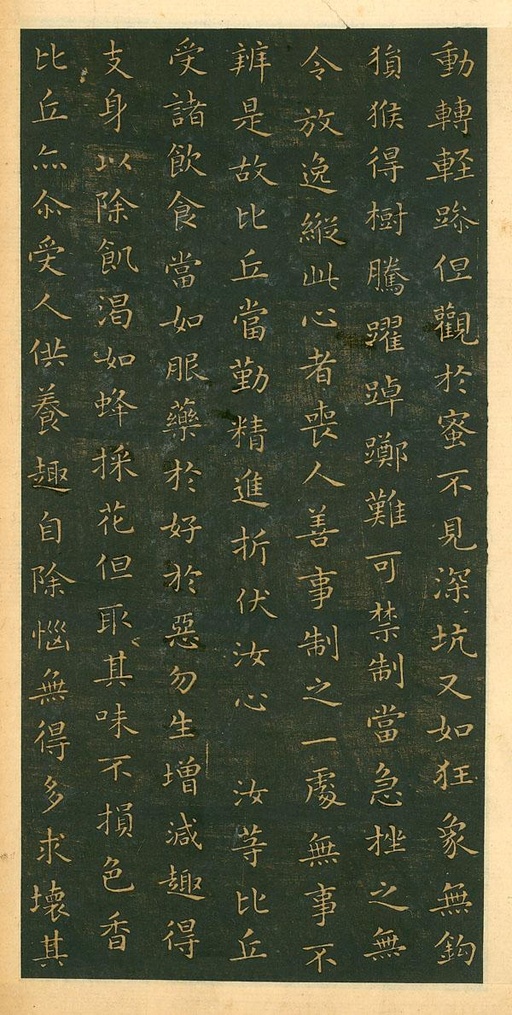 動轉軽踪但觀於蜜不見深坑又如狂象無鈎
猨猴得樹騰躍踔躑難可禁制當急挫之無
令放逸縱此心者喪人善事制之一處無事不
辨是故比丘當勤精進折伏汝心　汝等比丘
受諸飲食當如服藥於好於惡勿生增減趣得
支身以除飢渴如蜂採花但取其味不損色香
比丘亦尒受人供養趣自除惱無得多求壞其